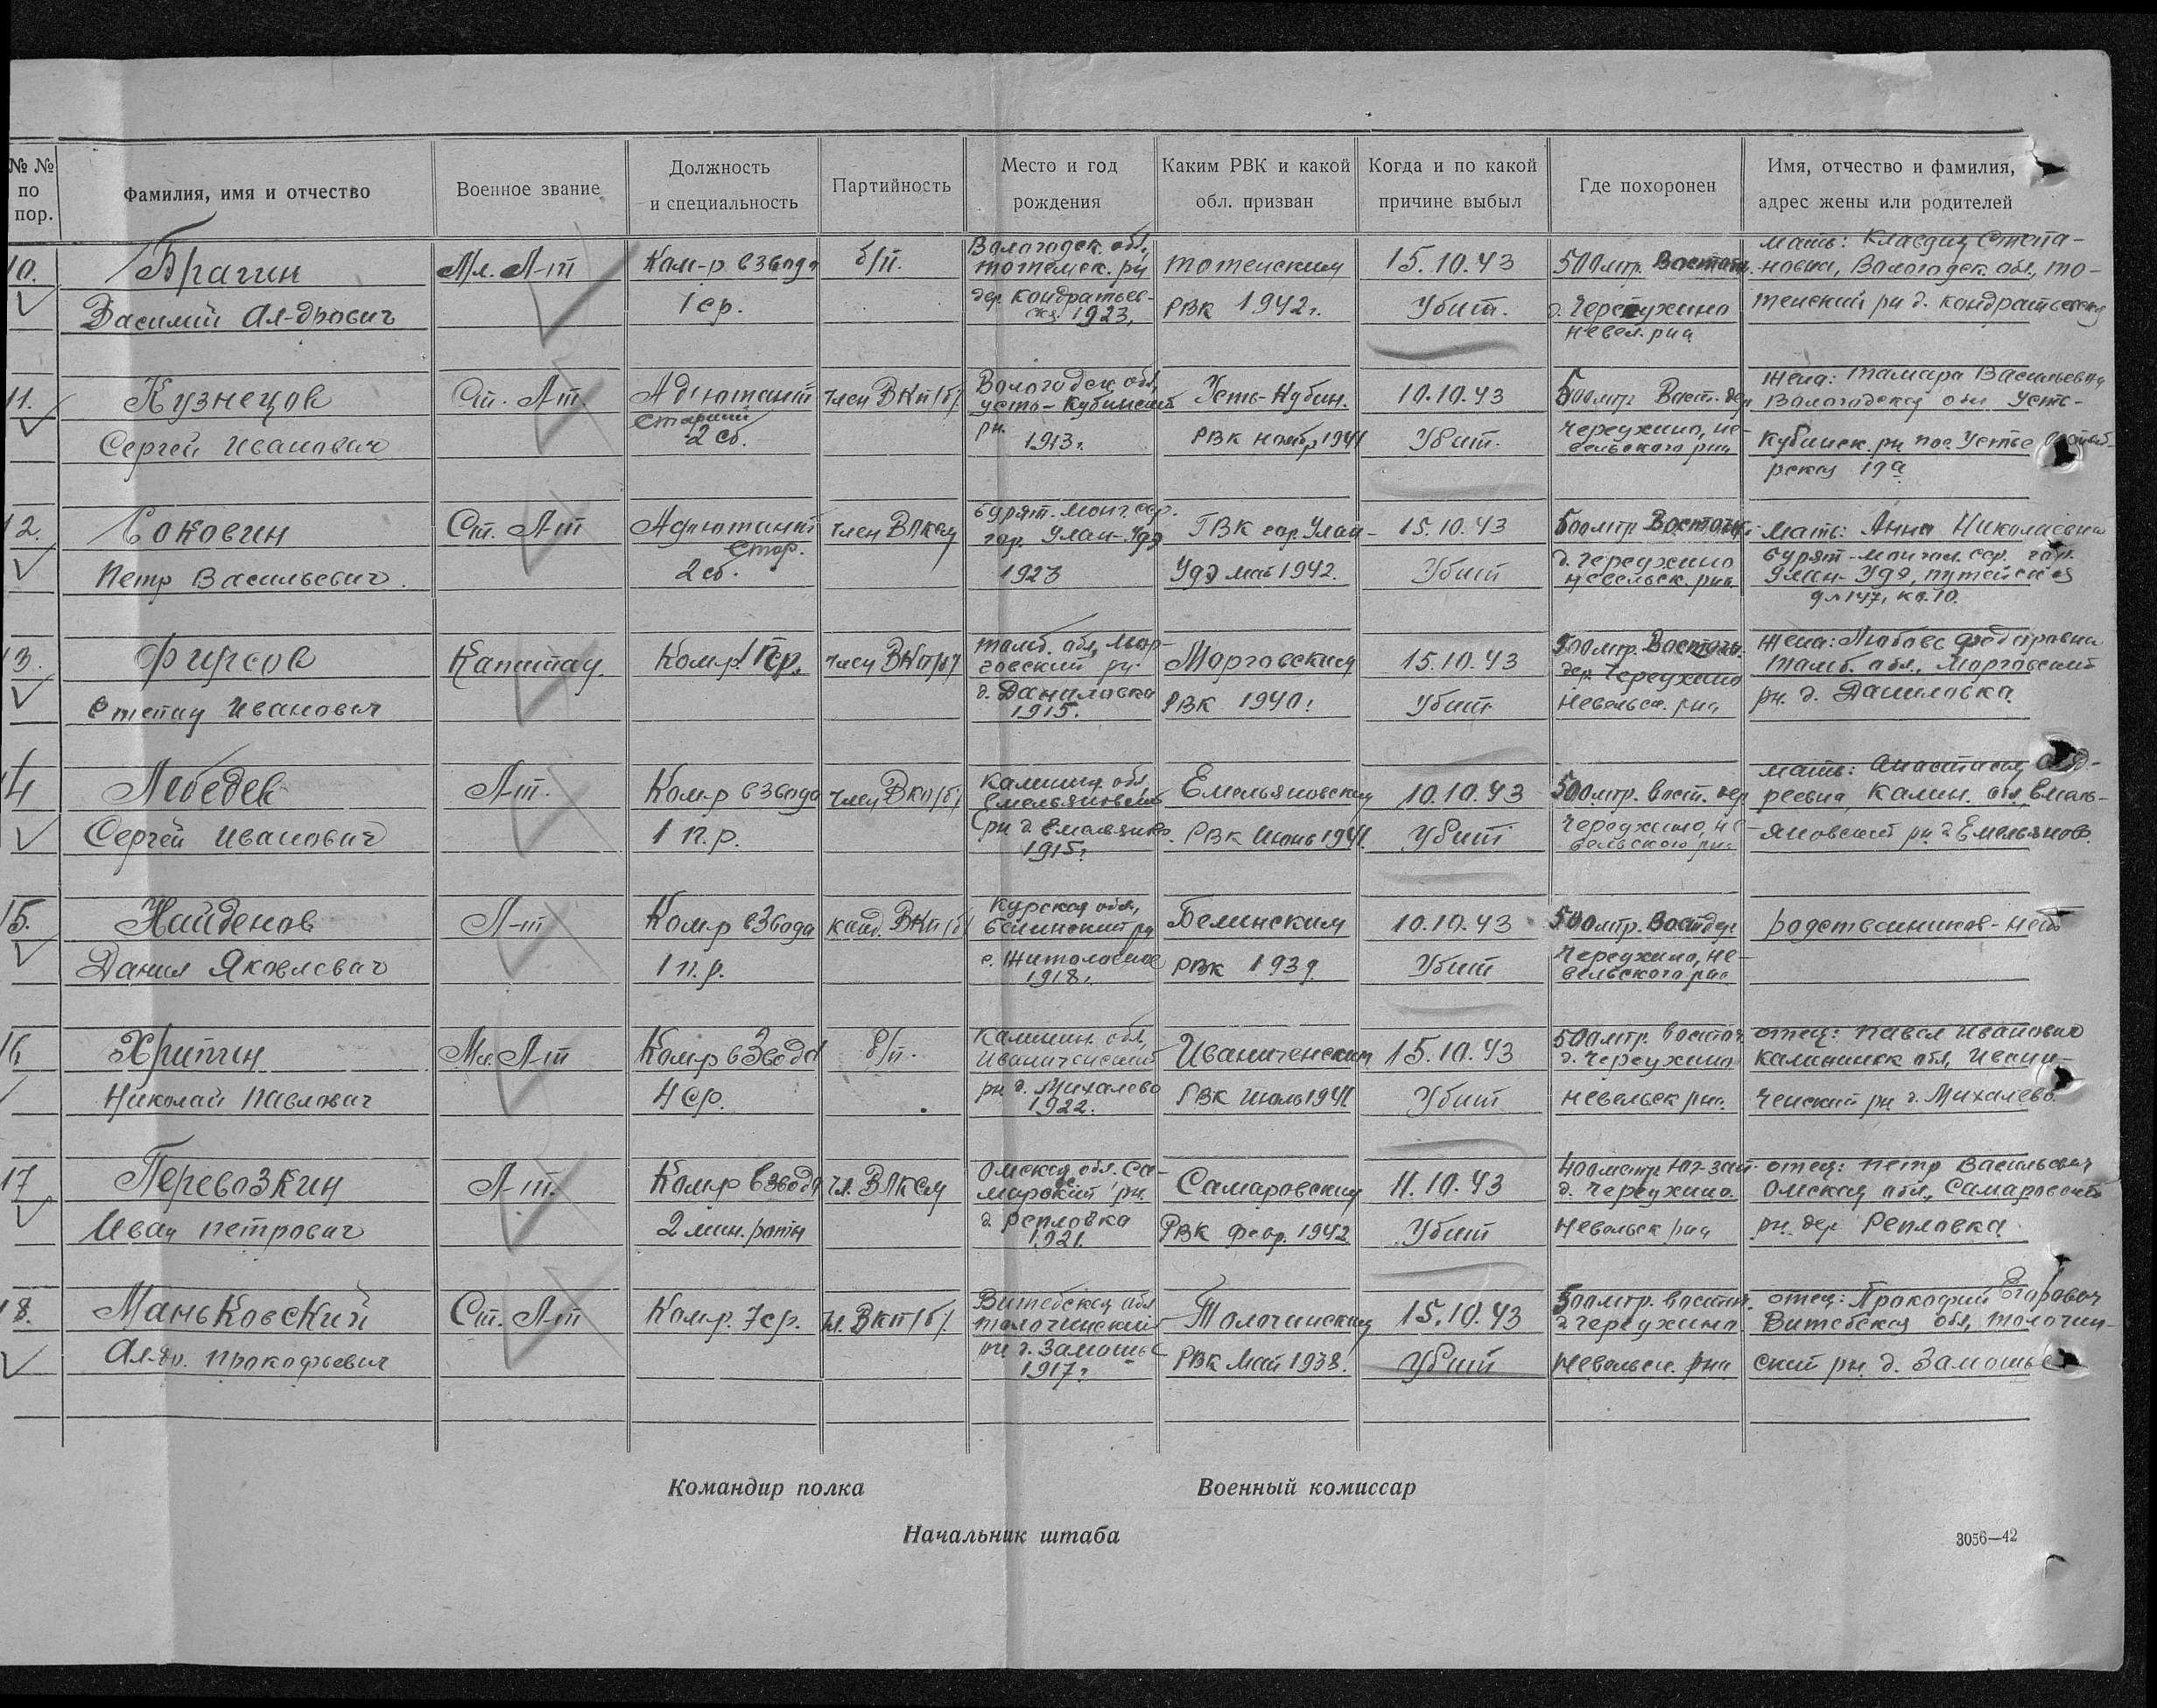 № № по пор.
Фамилия, имя и отчество
Военное звание
Должность и специальность
Партийность
Место и год рождения
Каким РВК и какой обл. призван
Когда и по какой причине выбыл
Где похоронен
Имя, отчество и фамилия, адрес жены или родителей
10.
Брагин
Василий Ал-дрович
Мл. Л-т
Ком-р взвода
1 ср.
б/п.
Вологодск. обл,
тотемск. рн
дер. Кондратьев-
1923,
тотемским
РВК 1942г.
15.10.43
Убит.
500 мтр. Восточн.
д. Чередухино
Невел. рна
мать: Клавдия Степа-
новна, Вологодск. обл, то-
темский рн д. Кондратьевская
11.
Кузнецов
Сергей Иванович
Ст. Л-т.
Адютант
старший
2 сб.
член ВКП/б/
Вологодск обл,
усть-Кубинский
рн.
1913г.
Усть-Кубин.
РВК ноябр 1941
10.10.43
Убит.
500 мтр Вост. дер
Чередухино, не-
вельского рна
жена: Тамара Васильевна
Вологодская обл Усть-
Кубинск. рн пос. Устье
12.
Соковин
Петр Васильевич.
Ст. Л-т
Адютант
стар.
2 сб.
член ВЛКСМ
бурят. монг сср.
гор. Улан-Удэ
1923
ГВК гор. Улан-
Удэ май 1942.
15.10.43
Убит
500 мтр Восточн.
д. Чередухино
Невельск. рна.
мать: Анна Николаевна
бурят-монгол. сср. гор.
Улан-Удэ, путейская
д №147, кв. 10.
13.
Фирсов
Степан Иванович
Капитан.
Ком-р
член ВКП/б/
тамб. обл, Мор-
говский рн
д. Даниловка
1915.
Морговским
РВК 1940г
15.10.43
Убит.
500 мтр. Восточн.
дер. Чередухино
Невельск. рна
жена: Любовь Федоровна
тамб. обл., Морговский
рн. д. Даниловка.
14
Лебедев
Сергей Иванович
Л-т.
Ком-р взвода
1 п.р.
член ВКП/б/
Калинин. обл,
Емельяновский
рн д. Емельяново
1915г
Емельяновским
РВК Июнь 1941.
10.10.43
Убит
500 мтр. вост. дер
Чередухино, не-
вельского рна
мать: Анастасия
реевна, Калин. обл, Емель-
яновский рн. д Емельянов.
15.
Найденов
Данил Яковлевич
Л-т
Ком-р взвода
1 п.р.
канд. ВКП/б/
Курская обл,
Беленский рн
1918г.
Беленским
РВК 1939
10.10.43
Убит
500 мтр. Вост дер
Чередухино, не-
вельского рна
родственников - нет
16
Хрипин
Николай Павлович
Мл. Л-т
Ком-р взвода
4 ср.
б/п.
Калинин. обл,
Иваниченский
рн д. Михалево
1922.
Иваниченским
РВК Июль 1941
15.10.43
Убит
500 мтр. восточ.
д. Чередухино
Невельск рна.
отец: Павел Иванович
Калининск обл, Ивани-
ченский рн д. Михалево
17
Перевозкин
Иван Петрович
Л-т.
Ком-р взвода
2 мин. роты
чл. ВЛКСМ
Омская обл. Са-
маровский рн.
д. Реполовка
1921.
Самаровским
РВК февр. 1942
11.10.43
Убит
400 метр Юг-зап.
д. Чередухино.
Невельск рна
отец: Петр Васильевич
Омская обл, Самаровский
рн. дер Реполовка
18.
Маньковский
Ал-др. Прокофьевич
Ст. Л-т
Ком-р. 7 ср.
чл. ВКП/б/.
Витебская обл
толочинский
рн д. Замошье
1917г
Толочинским
РВК Май 1938.
15.10.43
Убит
500 мтр. восточн.
д Чередухино
Невельск. рна
отец: Прокофий Егорович
Витебская обл, толочин-
ский рн. д. Замошье
Командир полка
Военный комиссар
Начальник штаба
3056—42